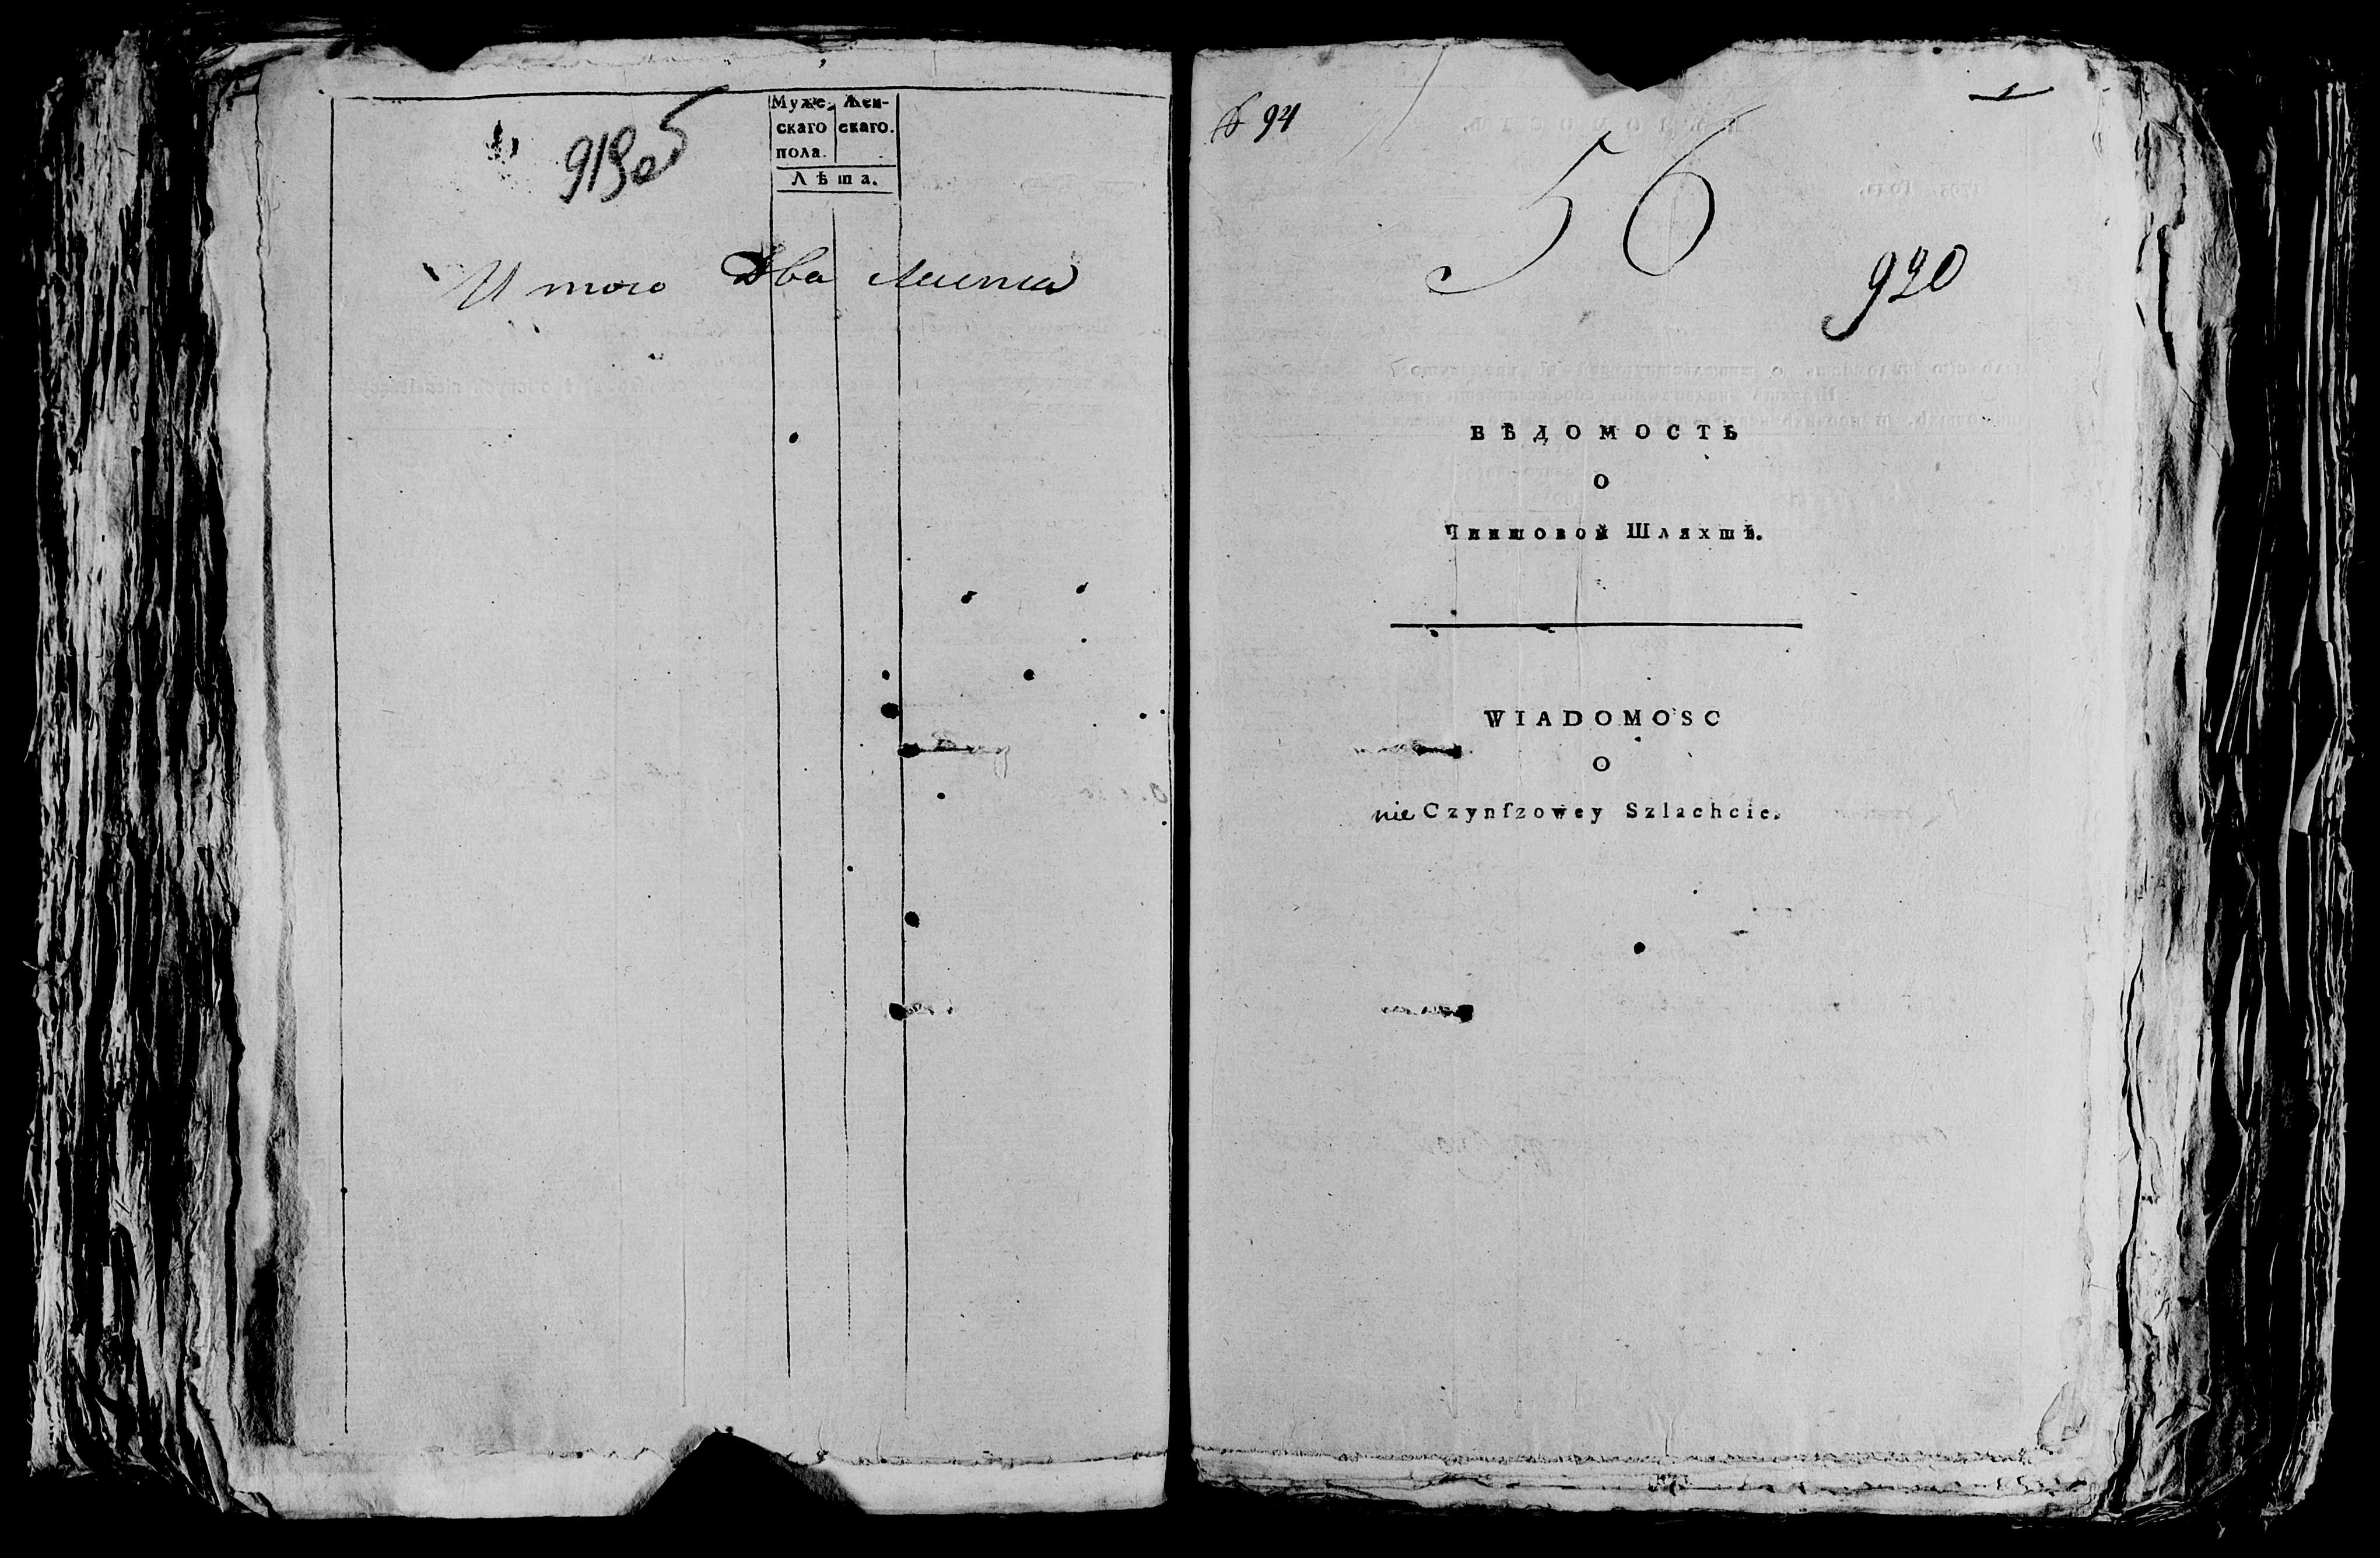 919об
Муже- Жен-
скаго скаго.
пола.
Лѣта.
Итого Два листа
№ 94
1
56
920
ВѢДОМОСТЬ
О
Чиншовой Шляхтѣ.
WIADOMOSC
O
nie Czynſzowey Szlachcie.